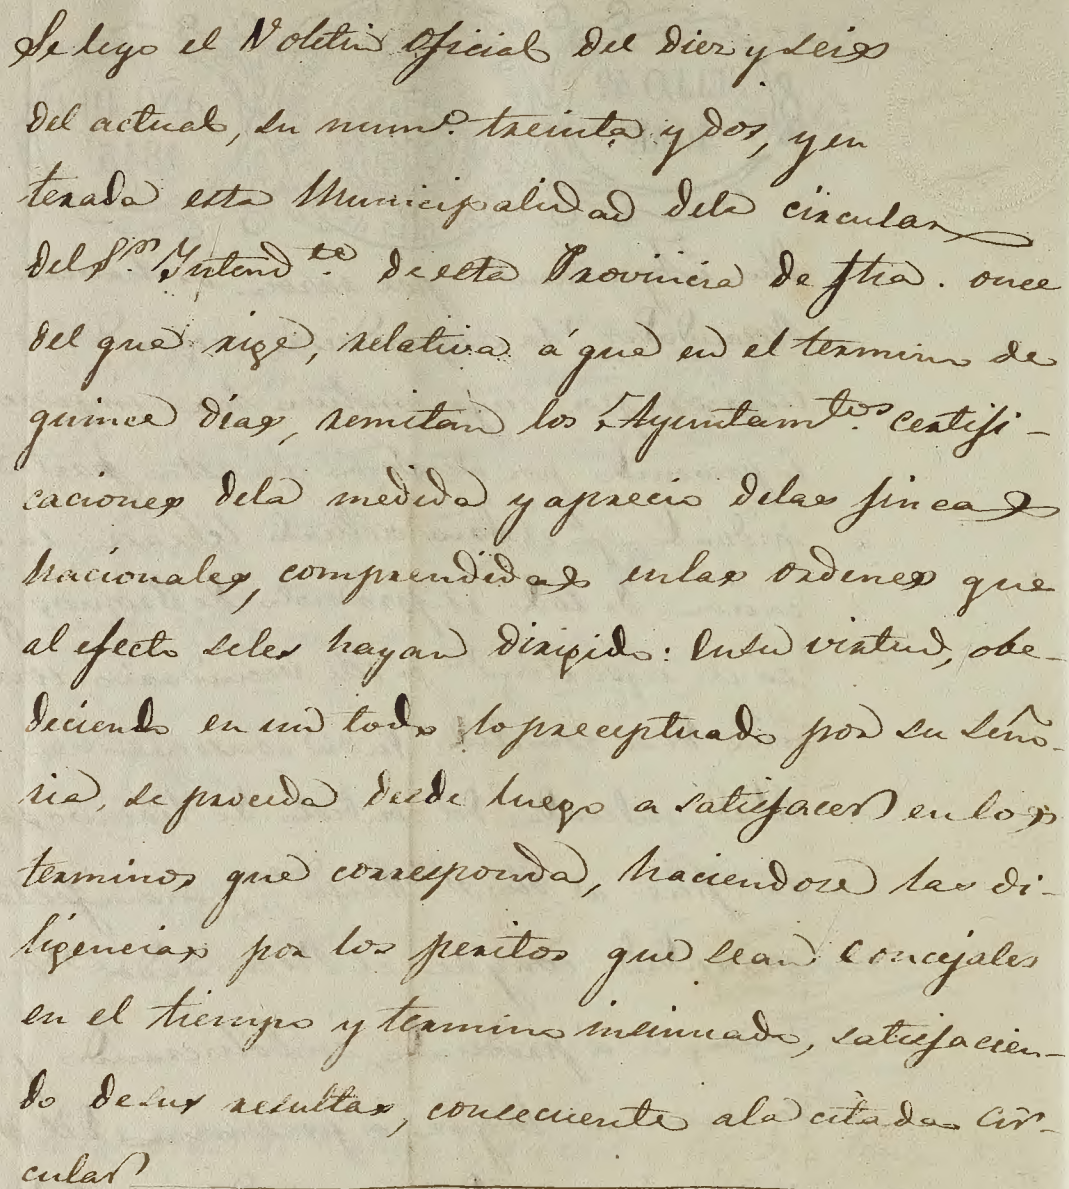 Se leyo el Voletin oficial del diez y seis
del actual, su num.º treinta y dos, y en
terada esta Municipalidad dela circular
del S.or Intend.te de esta Provincia de fha. once
del que rige, relativa á que en el termino de
quince días, remitan los Ayuntam.tos certifi-
caciones dela medida y aprecio delas fincas
nacionales, comprendidas enlas ordenes que
al efecto seles hayan dirigido: Ensu virtud, obe-
deciendo en un todo lo preceptuado por su Seño-
ria, se proceda desde luego a satisfacer en los
terminos que corresponda, haciendose las di-
ligencias por los peritos que sean Concejales
en el tiempo y termino insinuado, satisfacien-
do desus resultas, concecuente ala citada Cir-
cular